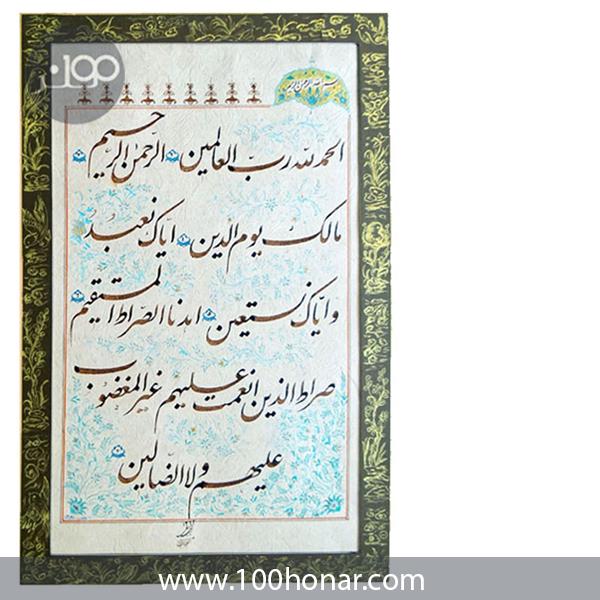 بسم الله الرحمن الرحیم
الحمد لله رب العالمین الرحمن الرحیم
مالک یوم الدین ایاک نعبد
وایاک نستعین اهدنا الصراط المستقیم
صراط الذین انعمت علیهم غیر المغضوب
علیهم ولا الضالین
www.100honar.com